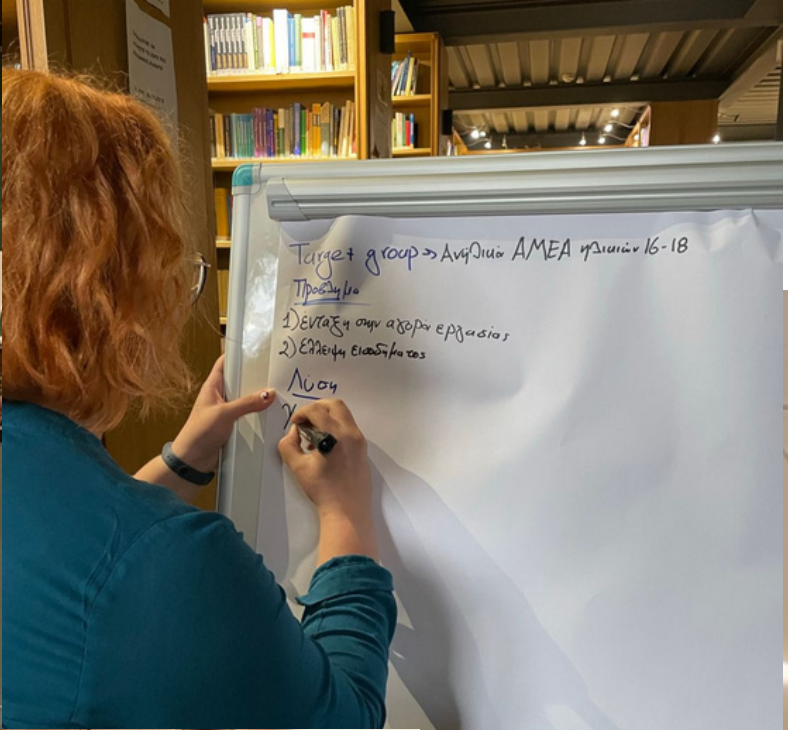 Target group → Ανήλικα ΑΜΕΑ ηλικιών 16-18
Πρόβλημα
1) ένταξη στην αγορά εργασίας
2) έλλειψη εισοδήματος
Λύση